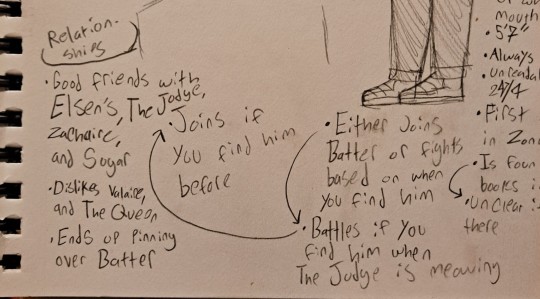 Relation-
ships
• Good friends with
Elsen's, The Judge,
Zacharie,
and Sugar
• Dislikes Valarie,
and The Queen
• Ends up Pinning
over Batter
• Joins if
you find him
before
• Either Joins
Batter or fights
based on when
you find him
• Battles if you
find him when
The Judge is meowing
mouth
• 5'7"
• Always
• unreada
24/4
• First
in Zon
• Is foun
books i
• Unclear i
there